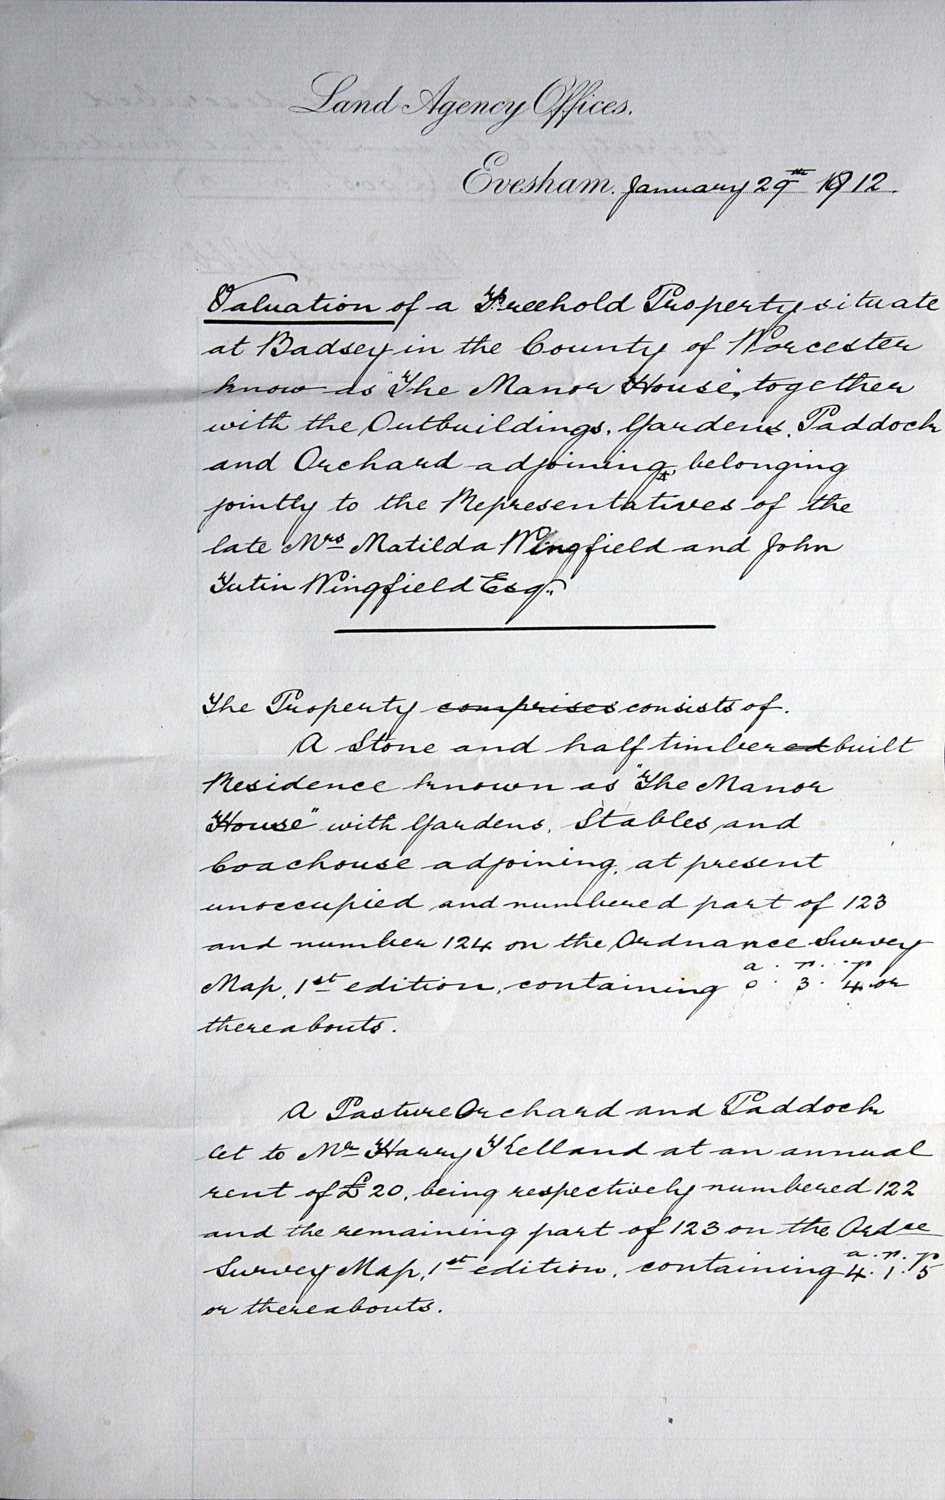 Land Agency Offices.
Evesham. January 29th 1912.
Valuation of a Freehold Property situate
at Badsey in the County of Worcester
know as "The Manor House", together
with the Outbuildings, Gardens, Paddock
and Orchard adjoining, belonging
jointly to the Representatives of the
late Mrs Matilda Wingfield and John
Tutin Wingfield Esq.
The Property comprises consists of.
A Stone and half timbered built
Residence known as "The Manor
House" with Gardens, Stables and
Coachouse adjoining, at present
unoccupied and numbered part of 123
and number 124 on the Ordnance Survey
a. r. p
Map, 1st edition, containing 0. 3. 4 or
thereabouts.
A Pasture Orchard and Paddock
let to Mr Harry Kelland at an annual
rent of £20, being respectively numbered 122
and the remaining part of 123 on the Ordce
a. r. p
Survey Map, 1st edition, containing 4. 1. 5
or thereabouts.